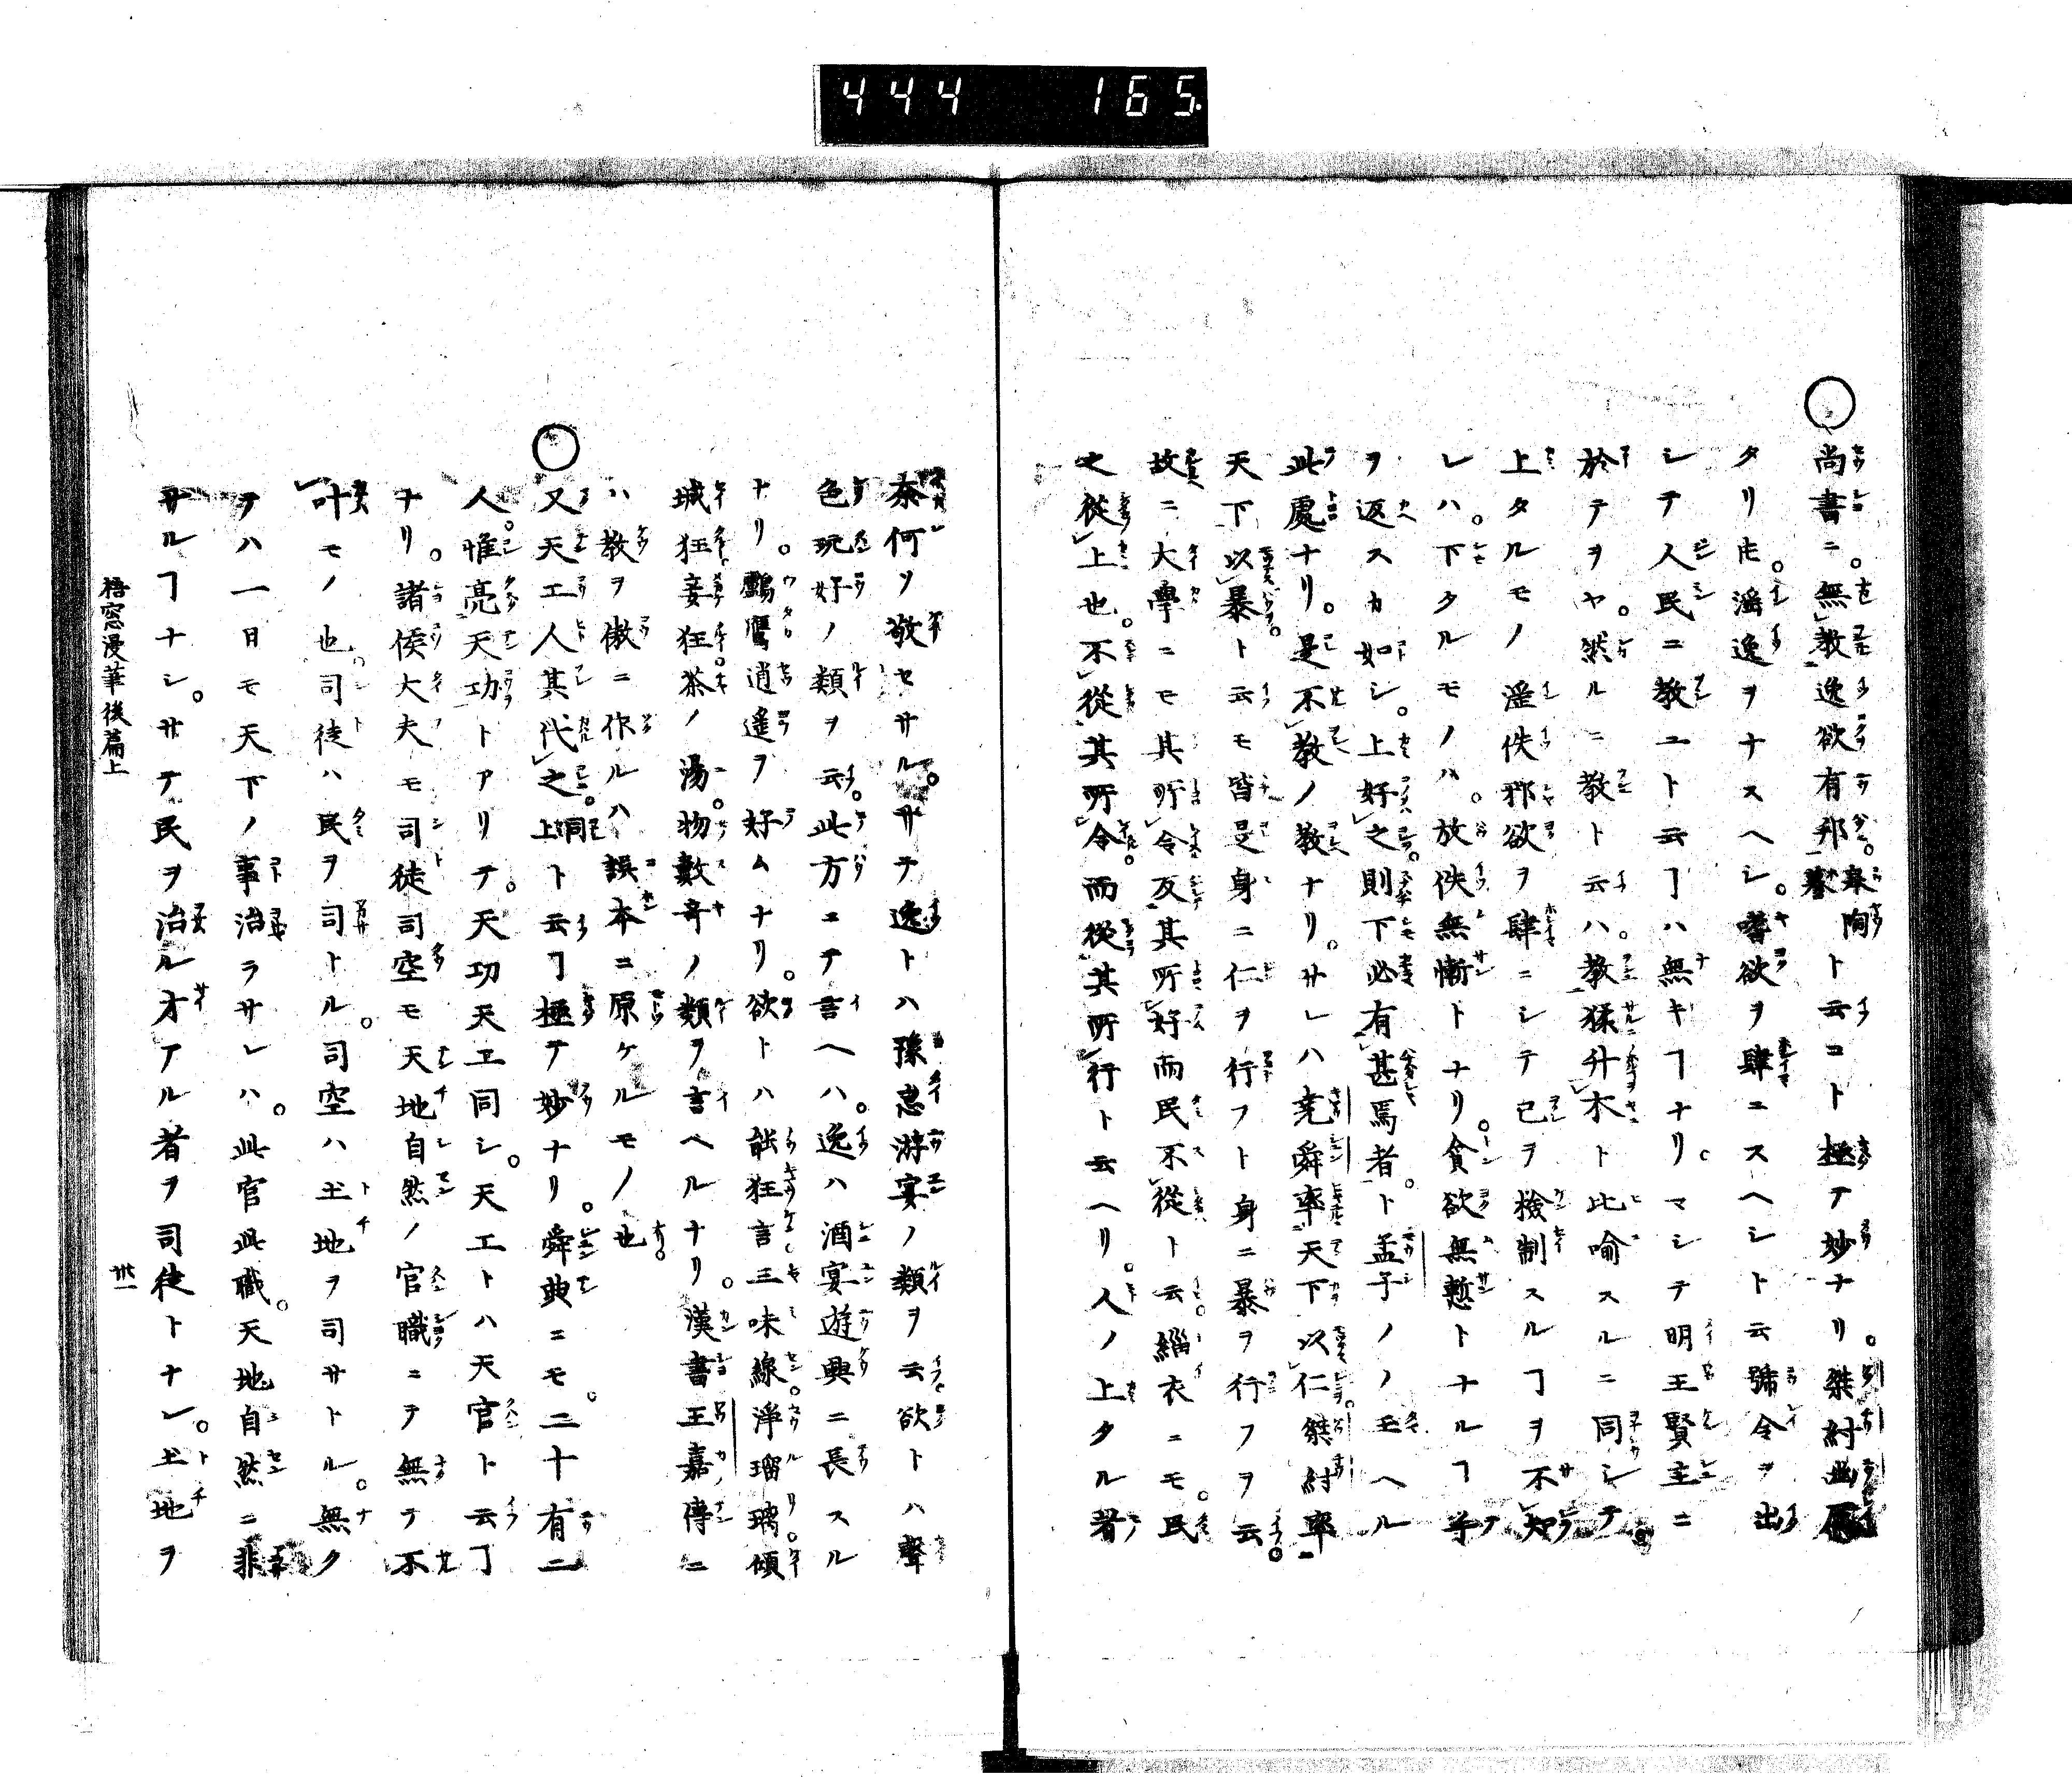 444 165
尚書ニ。無教逸欲有邦。皐陶謨ト云コト極テ妙ナリ。桀紂幽厲
タリ𪜈。滛逸ヲナスヘシ。嗜欲ヲ肆ニスヘシト云號令ヲ出
シテ人民ニ教ユト云ヿハ無キヿナリ。マシテ明王賢主ニ
於テヲヤ。然ルニ教ト云ハ。教猱升木ト比喩スルニ同シテ
上タルモノ滛佚邪欲ヲ肆ニシテ己ヲ檢制スルヿヲ不知
レハ。下タルモノハ。放佚無慚トナリ。貪欲無慙トナルヿ手
ヲ返スカ如シ。上好之則下必有甚焉者。ト孟子ノノ玉ヘル
此處ナリ。是不教ノ教ナリ。サレハ堯舜率天下以仁。桀紂率
天下以暴ト云モ皆是身ニ仁ヲ行フト身ニ暴ヲ行フヲ云。
故ニ大學ニモ其所令反其所好而民不從ト云。緇衣ニモ。民
之從上也。不從其所令。而從其所行ト云ヘリ。人ノ上タル者
奈何ソ敬セサル。サテ逸トハ豫怠游宴ノ類ヲ云。欲トハ聲
色玩好ノ類ヲ云。此方ニテ言ヘハ。逸ハ酒宴遊興ニ長スル
ナリ。鸕鷹逍遙ヲ好ムナリ。欲トハ能狂言三味線。淨瑠璃。傾
城狂妾狂。茶ノ湯。物數奇ノ類ヲ言ヘルナリ。漢書王嘉傳ニ
ハ教ヲ傲ニ作ルハ誤本ニ原ケルモノ也。
又天工人其代之。上同ト云ヿ極テ妙ナリ。舜典ニモ。二十有二
人。惟亮天功トアリテ。天功天工同シ。天工トハ天官ト云ヿ
ナリ。諸侯大夫モ司徒司空モ天地自然ノ官職ニヲ無テ不
叶モノ也。司徒ハ民ヲ司トル。司空ハ土地ヲ司サトル。無ク
ヲハ一日モ天下ノ事治ラサレハ。此官此職。天地自然ニ非
サルヿナシ。サテ民ヲ治ル才アル者ヲ司徒トナシ。土地ヲ
梧窓漫筆後篇上 卅一